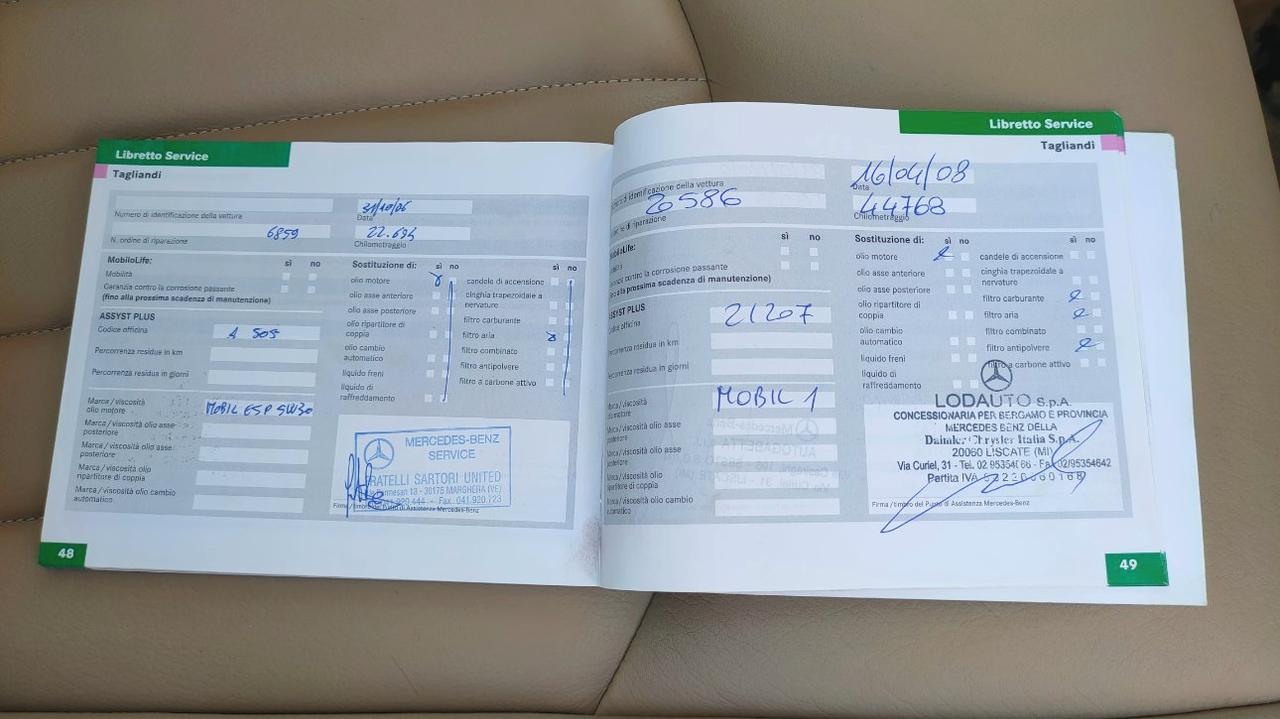 Libretto Service
Tagliandi
31/10/06
Numero di identificazione della vettura
Data
6859
22.694
N. ordine di riparazione
Chilometraggio
MobiloLife:
sì no
Mobilità
Garanzia contro la corrosione passante
(fino alla prossima scadenza di manutenzione)
ASSYST PLUS
Codice officina
A 505
Percorrenza residua in km
Percorrenza residua in giorni
Marca / viscosità
olio motore
MOBIL ESP 5W30
Marca / viscosità olio asse
posteriore
Marca / viscosità olio asse
posteriore
Marca / viscosità olio
ripartitore di coppia
Marca / viscosità olio cambio
automatico
Sostituzione di:
sì no
olio motore
olio asse anteriore
olio asse posteriore
olio ripartitore di
coppia
olio cambio
automatico
liquido freni
liquido di
raffreddamento
sì no
candele di accensione
cinghia trapezoidale a
nervature
filtro carburante
filtro aria
filtro combinato
filtro antipolvere
filtro a carbone attivo
MERCEDES-BENZ
SERVICE
FRATELLI SARTORI UNITED
30175 MARGHERA (VE)
Fax 041.920.723
Firma / timbro del Punto di Assistenza Mercedes-Benz
48
Libretto Service
Tagliandi
16/04/08
di identificazione della vettura
Data
20586
44768
di riparazione
Chilometraggio
MobiloLife:
sì no
contro la corrosione passante
prossima scadenza di manutenzione)
ASSYST PLUS
Codice officina
21207
residua in km
Percorrenza residua in giorni
Marca / viscosità
olio motore
MOBIL 1
Marca / viscosità olio asse
posteriore
Marca / viscosità olio asse
posteriore
Marca / viscosità olio
ripartitore di coppia
Marca / viscosità olio cambio
automatico
Sostituzione di:
sì no
olio motore
olio asse anteriore
olio asse posteriore
olio ripartitore di
coppia
olio cambio
automatico
liquido freni
liquido di
raffreddamento
sì no
candele di accensione
cinghia trapezoidale a
nervature
filtro carburante
filtro aria
filtro combinato
filtro antipolvere
filtro a carbone attivo
LODAUTO S.p.A.
CONCESSIONARIA PER BERGAMO E PROVINCIA
MERCEDES BENZ DELLA
Daimler Chrysler Italia S.p.A.
20060 LISCATE (MI)
Via Curiel, 31 - Tel. 02 95354166 - Fax 02/95354642
Partita IVA
Firma / timbro del Punto di Assistenza Mercedes-Benz
49